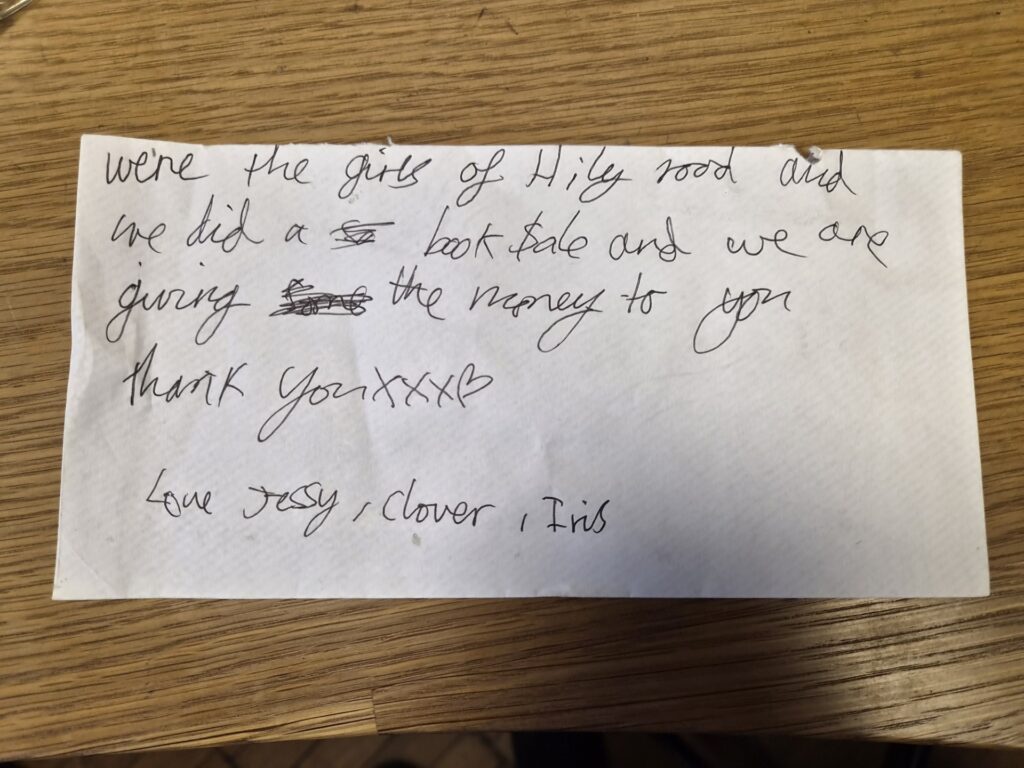 we're the girls of Hily road and
we did a book sale and we are
giving the money to you
thank you xxx♡
Love Jessy, Clover, Iris